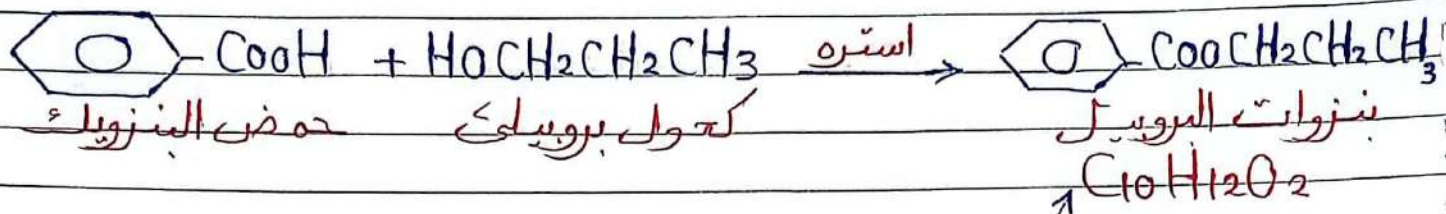 -COOH + HOCH2CH2CH3 استره → -COOCH2CH2CH3
حمض البنزويك كحول بروبيلي بنزوات البروبيل
C10H12O2